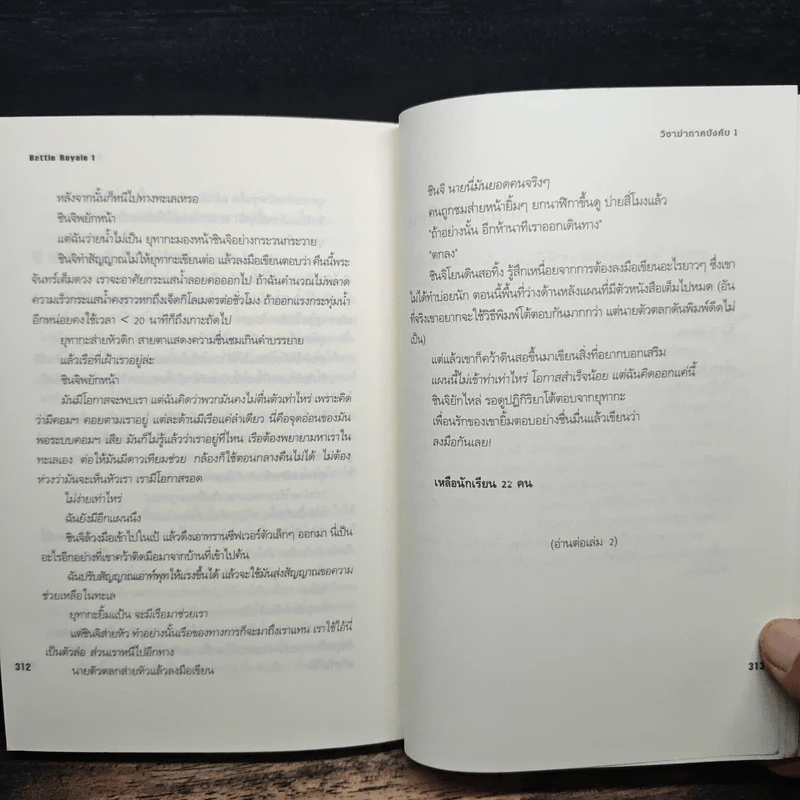 Battle Royale 1
หลังจากนั้นก็หนีไปทางทะเลเหรอ
ชินจิพยักหน้า
แต่ฉันว่ายน้ำไม่เป็น ยุทากะมองหน้าชินจิอย่างกระวนกระวาย
ชินจิทำสัญญาณไม่ให้ยุทากะเขียนต่อ แล้วลงมือเขียนตอบว่า คืนนี้พระ
จันทร์เต็มดวง เราจะอาศัยกระแสน้ำลอยคอออกไป ถ้าฉันคำนวณไม่พลาด
ความเร็วกระแสน้ำคงราวหกถึงเจ็ดกิโลเมตรต่อชั่วโมง ถ้าออกแรงกระทุ่มน้ำ
อีกหน่อยคงใช้เวลา < 20 นาทีก็ถึงเกาะถัดไป
ยุทากะส่ายหัวดิก สายตาแสดงความชื่นชมเกินคำบรรยาย
แล้วเรือที่เฝ้าเราอยู่ล่ะ
ชินจิพยักหน้า
มันมีโอกาสจะพบเรา แต่ฉันคิดว่าพวกมันคงไม่ตื่นตัวเท่าไหร่ เพราะคิด
ว่ามีคอมฯ คอยตามเราอยู่ แต่ละด้านมีเรือแค่ลำเดียว นี่คือจุดอ่อนของมัน
พอระบบคอมฯ เสีย มันก็ไม่รู้แล้วว่าเราอยู่ที่ไหน เรือต้องพยายามหาเราใน
ทะเลเอง ต่อให้มันมีดาวเทียมช่วย กล้องก็ใช้ตอนกลางคืนไม่ได้ ไม่ต้อง
ห่วงว่ามันจะเห็นหัวเรา เรามีโอกาสรอด
ไม่ง่ายเท่าไหร่
ฉันยังมีอีกแผนนึง
ชินจิล้วงมือเข้าไปในเป้ แล้วดึงเอาทรานซีฟเวอร์ตัวเล็กๆ ออกมา นี่เป็น
อะไรอีกอย่างที่เขาคว้าติดมือมาจากบ้านที่เข้าไปค้น
ฉันปรับสัญญาณเอาท์พุทให้แรงขึ้นได้ แล้วจะใช้มันส่งสัญญาณขอความ
ช่วยเหลือในทะเล
ยุทากะยิ้มแป้น จะมีเรือมาช่วยเรา
แต่ชินจิส่ายหัว ทำอย่างนั้นเรือของทางการก็จะมาถึงเราแทน เราใช้ไอ้นี่
เป็นตัวล่อ ส่วนเราหนีไปอีกทาง
นายตัวตลกส่ายหัวแล้วลงมือเขียน
312
วิชาฆ่าภาคบังคับ 1
ชินจิ นายนี่มันยอดคนจริงๆ
คนถูกชมส่ายหน้ายิ้มๆ ยกนาฬิกาขึ้นดู บ่ายสี่โมงแล้ว
"ถ้าอย่างนั้น อีกห้านาทีเราออกเดินทาง"
"ตกลง"
ชินจิโยนดินสอทิ้ง รู้สึกเหนื่อยจากการต้องลงมือเขียนอะไรยาวๆ ซึ่งเขา
ไม่ได้ทำบ่อยนัก ตอนนี้พื้นที่ว่างด้านหลังแผนที่มีตัวหนังสือเต็มไปหมด (อัน
ที่จริงเขาอยากจะใช้วิธีพิมพ์โต้ตอบกันมากกว่า แต่นายตัวตลกดันพิมพ์ดีดไม่
เป็น)
แต่แล้วเขาก็คว้าดินสอขึ้นมาเขียนสิ่งที่อยากบอกเสริม
แผนนี้ไม่เข้าท่าเท่าไหร่ โอกาสสำเร็จน้อย แต่ฉันคิดออกแค่นี้
ชินจิยักไหล่ รอดูปฏิกิริยาโต้ตอบจากยุทากะ
เพื่อนรักของเขายิ้มตอบอย่างชื่นมื่นแล้วเขียนว่า
ลงมือกันเลย!
เหลือนักเรียน 22 คน
(อ่านต่อเล่ม 2)
313